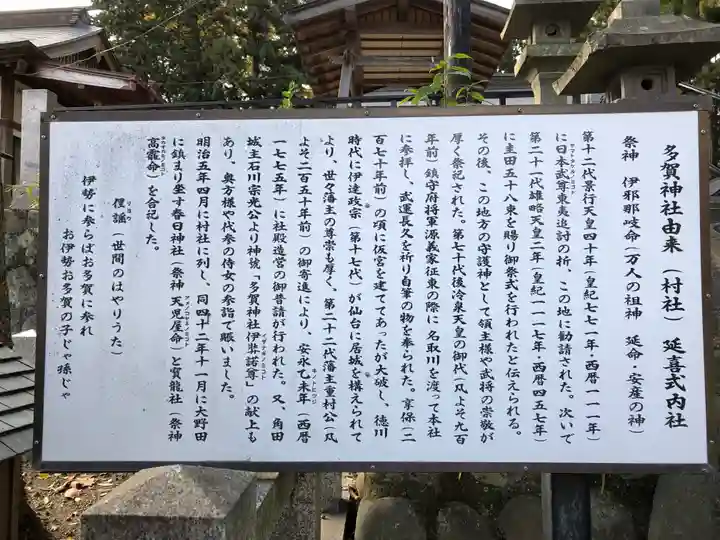 多賀神社由来（村社）延喜式内社
祭神　伊邪那岐命（万人の祖神　延命・安産の神）
第十二代景行天皇四十年（皇紀七七一年・西暦一一一年）
に日本武尊東夷追討の折、この地に勧請された。次いで
第二十一代雄略天皇二年（皇紀一一一七年・西暦四五七年）
に圭田五十八束を賜り御祭式を行われたと伝えられる。
その後、この地方の守護神として領主様や武将の崇敬が
厚く祭祀された。第七十代後冷泉天皇の御代（凡よそ九百
年前）鎮守府将軍源義家征東の際に名取川を渡って本社
に参拝し、武運長久を祈り自筆の物を奉られた。享保（二
百七十年前）の頃に仮宮を建ててあったが大破し、徳川
時代に伊達政宗（第十七代）が仙台に居城を構えられて
より、世々藩主の尊崇も厚く、第二十二代藩主重村公（凡
よそ二百五十年前）の御寄進により、安永乙未年（西暦
一七七五年）に社殿造営の御普請が行われた。又、角田
城主石川宗光公より神號「多賀神社伊弉諾尊」の献上も
あり、奥方様や代参の侍女の参詣で賑いました。
明治五年四月に村社に列し、同四十二年十一月に大野田
に鎮まり坐す春日神社（祭神　天児屋命）と寳龍社（祭神
高龗命）を合祀した。
俚謡（世間のはやりうた）
伊勢に参らばお多賀に参れ
お伊勢お多賀の子じゃ孫じゃ